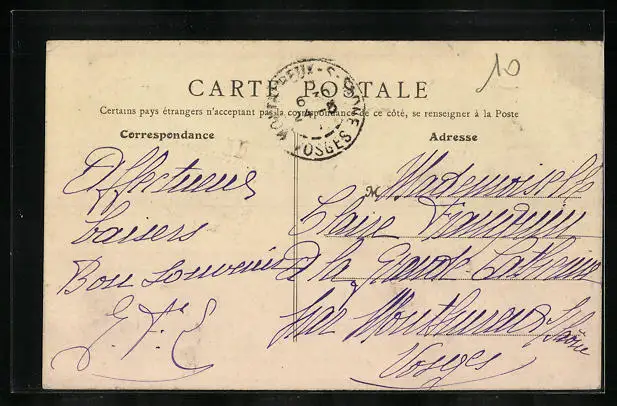 10
CARTE POSTALE
MONTHUREUX-S-SAONE
VOSGES
Certains pays étrangers n'acceptant pas la correspondance de ce côté, se renseigner à la Poste
Correspondance
Adresse
Affectueux
baisers
Bon souvenir
M Mademoiselle
Claire
à la Grande
par Monthureux s/Saône
Vosges